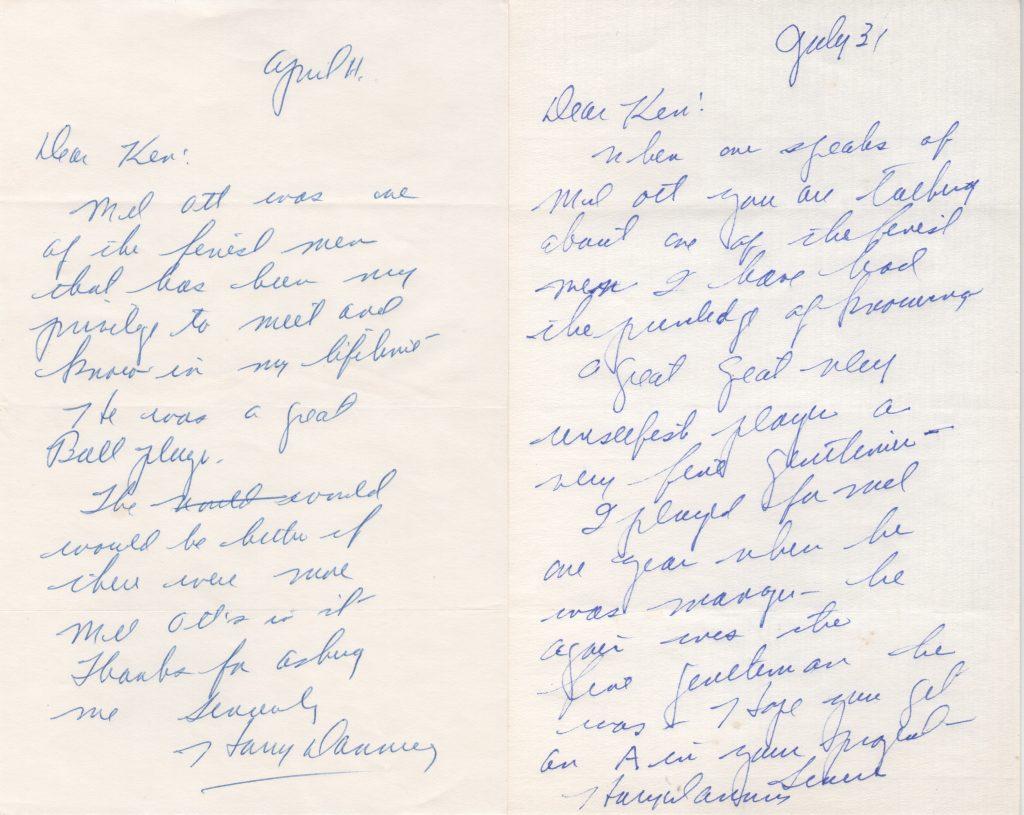 April 11.
Dear Ken:
Mel Ott was one
of the finist men
that has been my
privilege to meet and
know in my lifetime
He was a great
Ball player.
The would would
would be better if
there were more
Mel Ott's in it
Thanks for asking
me Sincerely
Harry Danning
July 31
Dear Ken:
When one speaks of
Mel Ott you are talking
about one of the finest
men I have had
the privledge of knowing
a great great very
unselfish player a
very fine gentlemen—
I played for Mel
one year when he
was manager— he
again was the
fine gentleman he
was— Hope you get
an A in your project—
Harry Danning